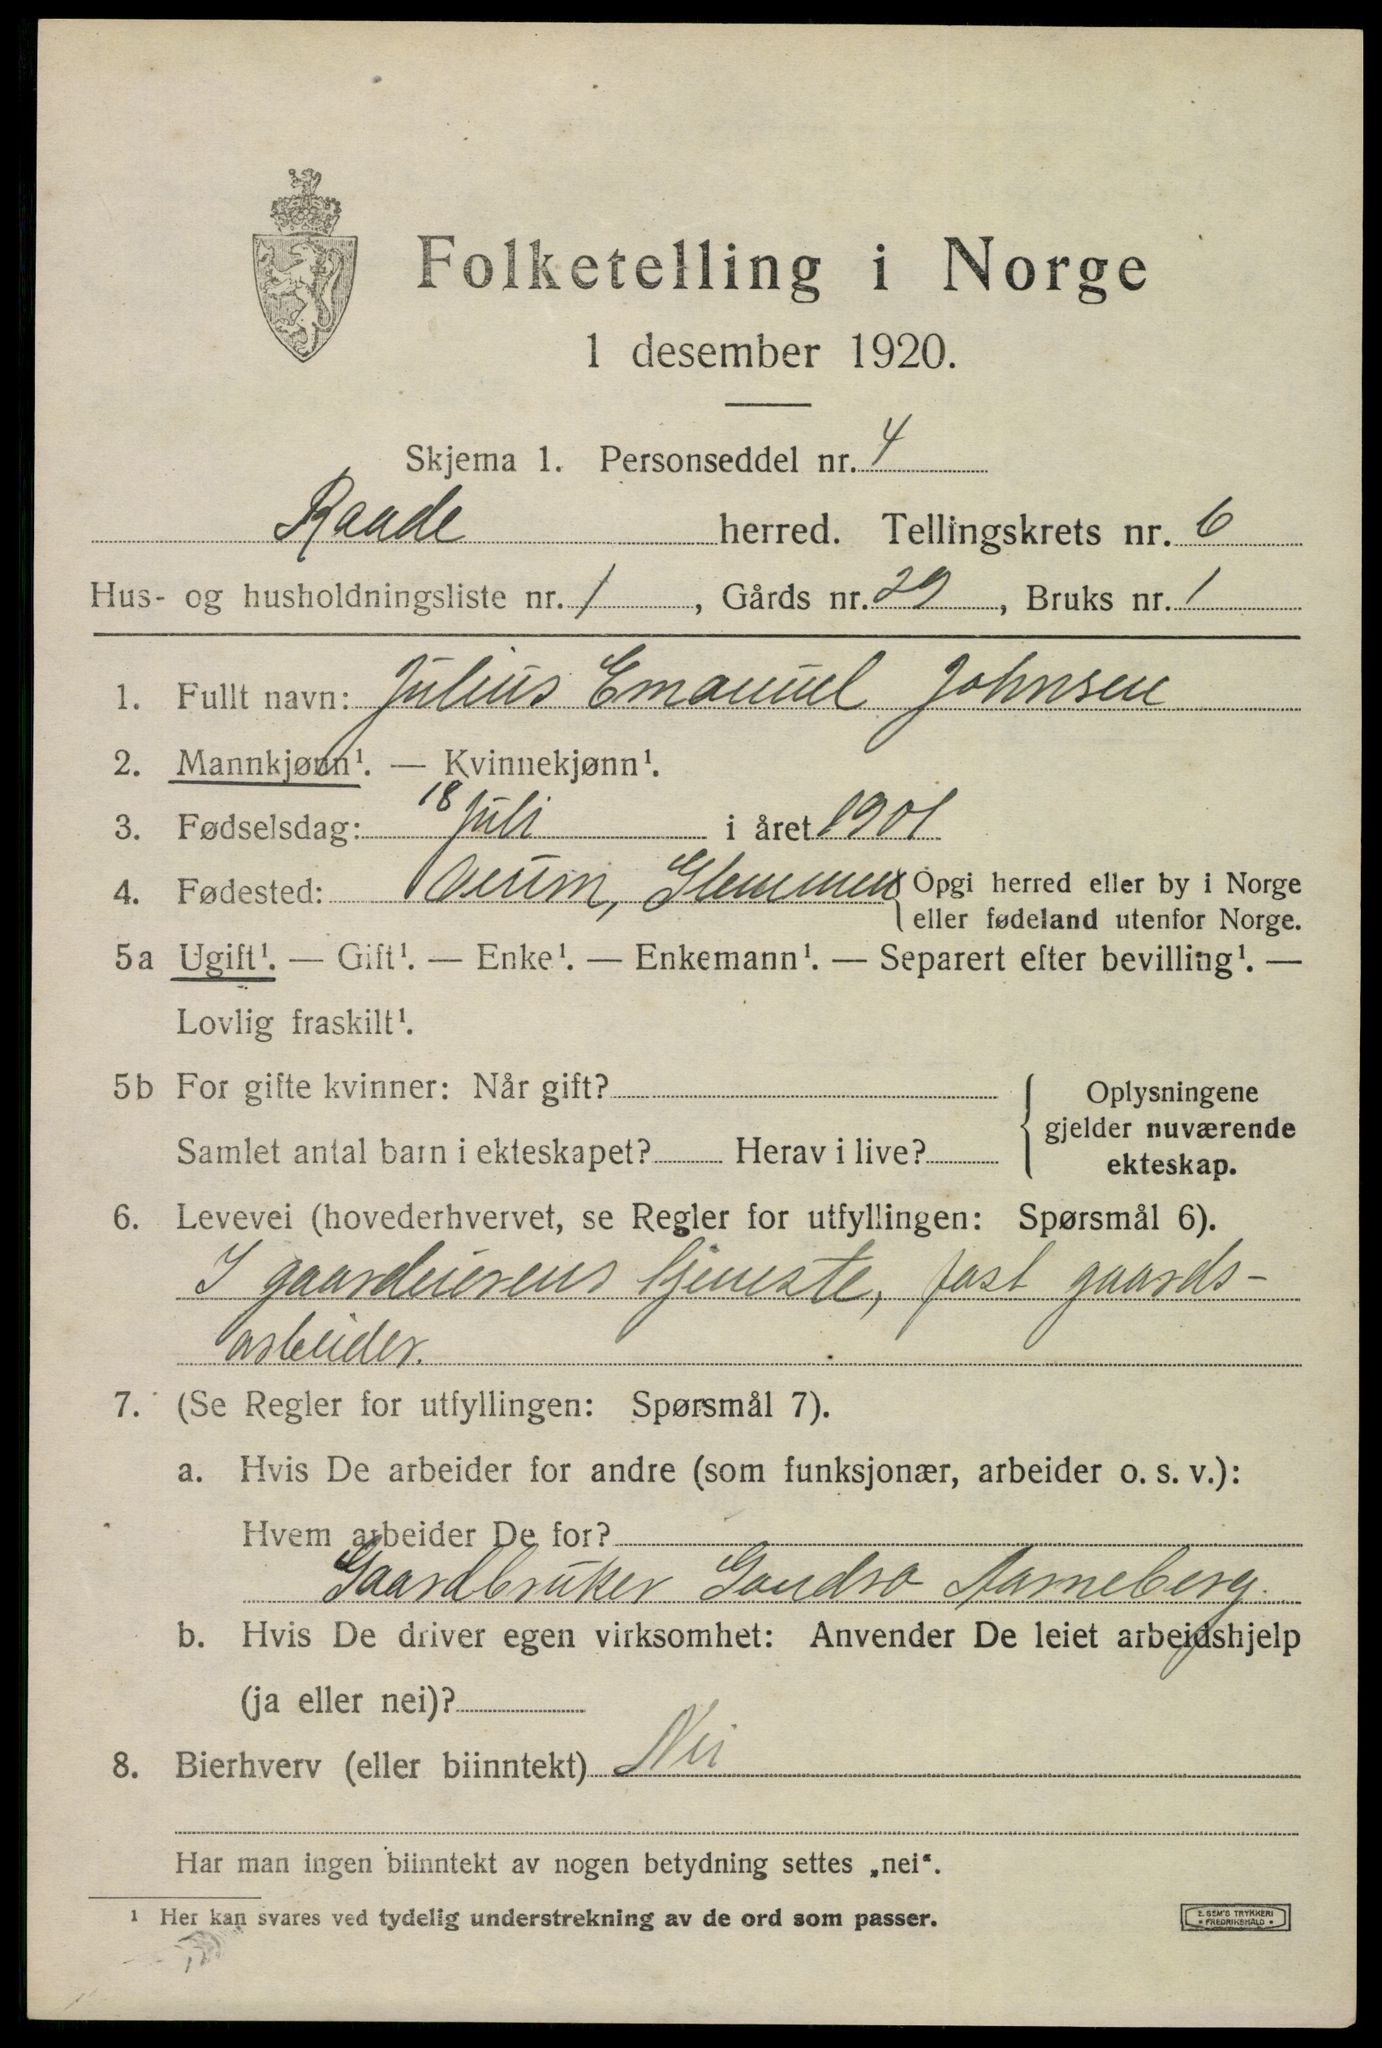 Folketelling i Norge
1 desember 1920.
Skjema 1. Personseddel nr. 4
Raade herred. Tellingskrets nr. 6
Hus- og husholdningsliste nr. 1, Gårds nr. 29, Bruks nr. 1
1. Fullt navn: Julius Emanuel Johnsen
2. Mannkjønn¹. — Kvinnekjønn¹.
3. Fødselsdag: 18 Juli i året 1901
4. Fødested: Glemmen Opgi herred eller by i Norge
eller fødeland utenfor Norge.
5a Ugift¹. — Gift¹. — Enke¹. — Enkemann¹. — Separert efter bevilling¹. —
Lovlig fraskilt¹.
5b For gifte kvinner: Når gift?
Samlet antal barn i ekteskapet? Herav i live?
Oplysningene
gjelder nuværende
ekteskap.
6. Levevei (hovederhvervet, se Regler for utfyllingen: Spørsmål 6).
I gaardeierens tjeneste, fast gaards-
arbeider.
7. (Se Regler for utfyllingen: Spørsmål 7).
a. Hvis De arbeider for andre (som funksjonær, arbeider o. s. v.):
Hvem arbeider De for?
Gaardbruker Aarneberg.
b. Hvis De driver egen virksomhet: Anvender De leiet arbeidshjelp
(ja eller nei)?
8. Bierhverv (eller biinntekt) Nei
Har man ingen biinntekt av nogen betydning settes „nei“.
¹ Her kan svares ved tydelig understrekning av de ord som passer.
E. SEM'S TRYKKERI
• FREDRIKSHALD •